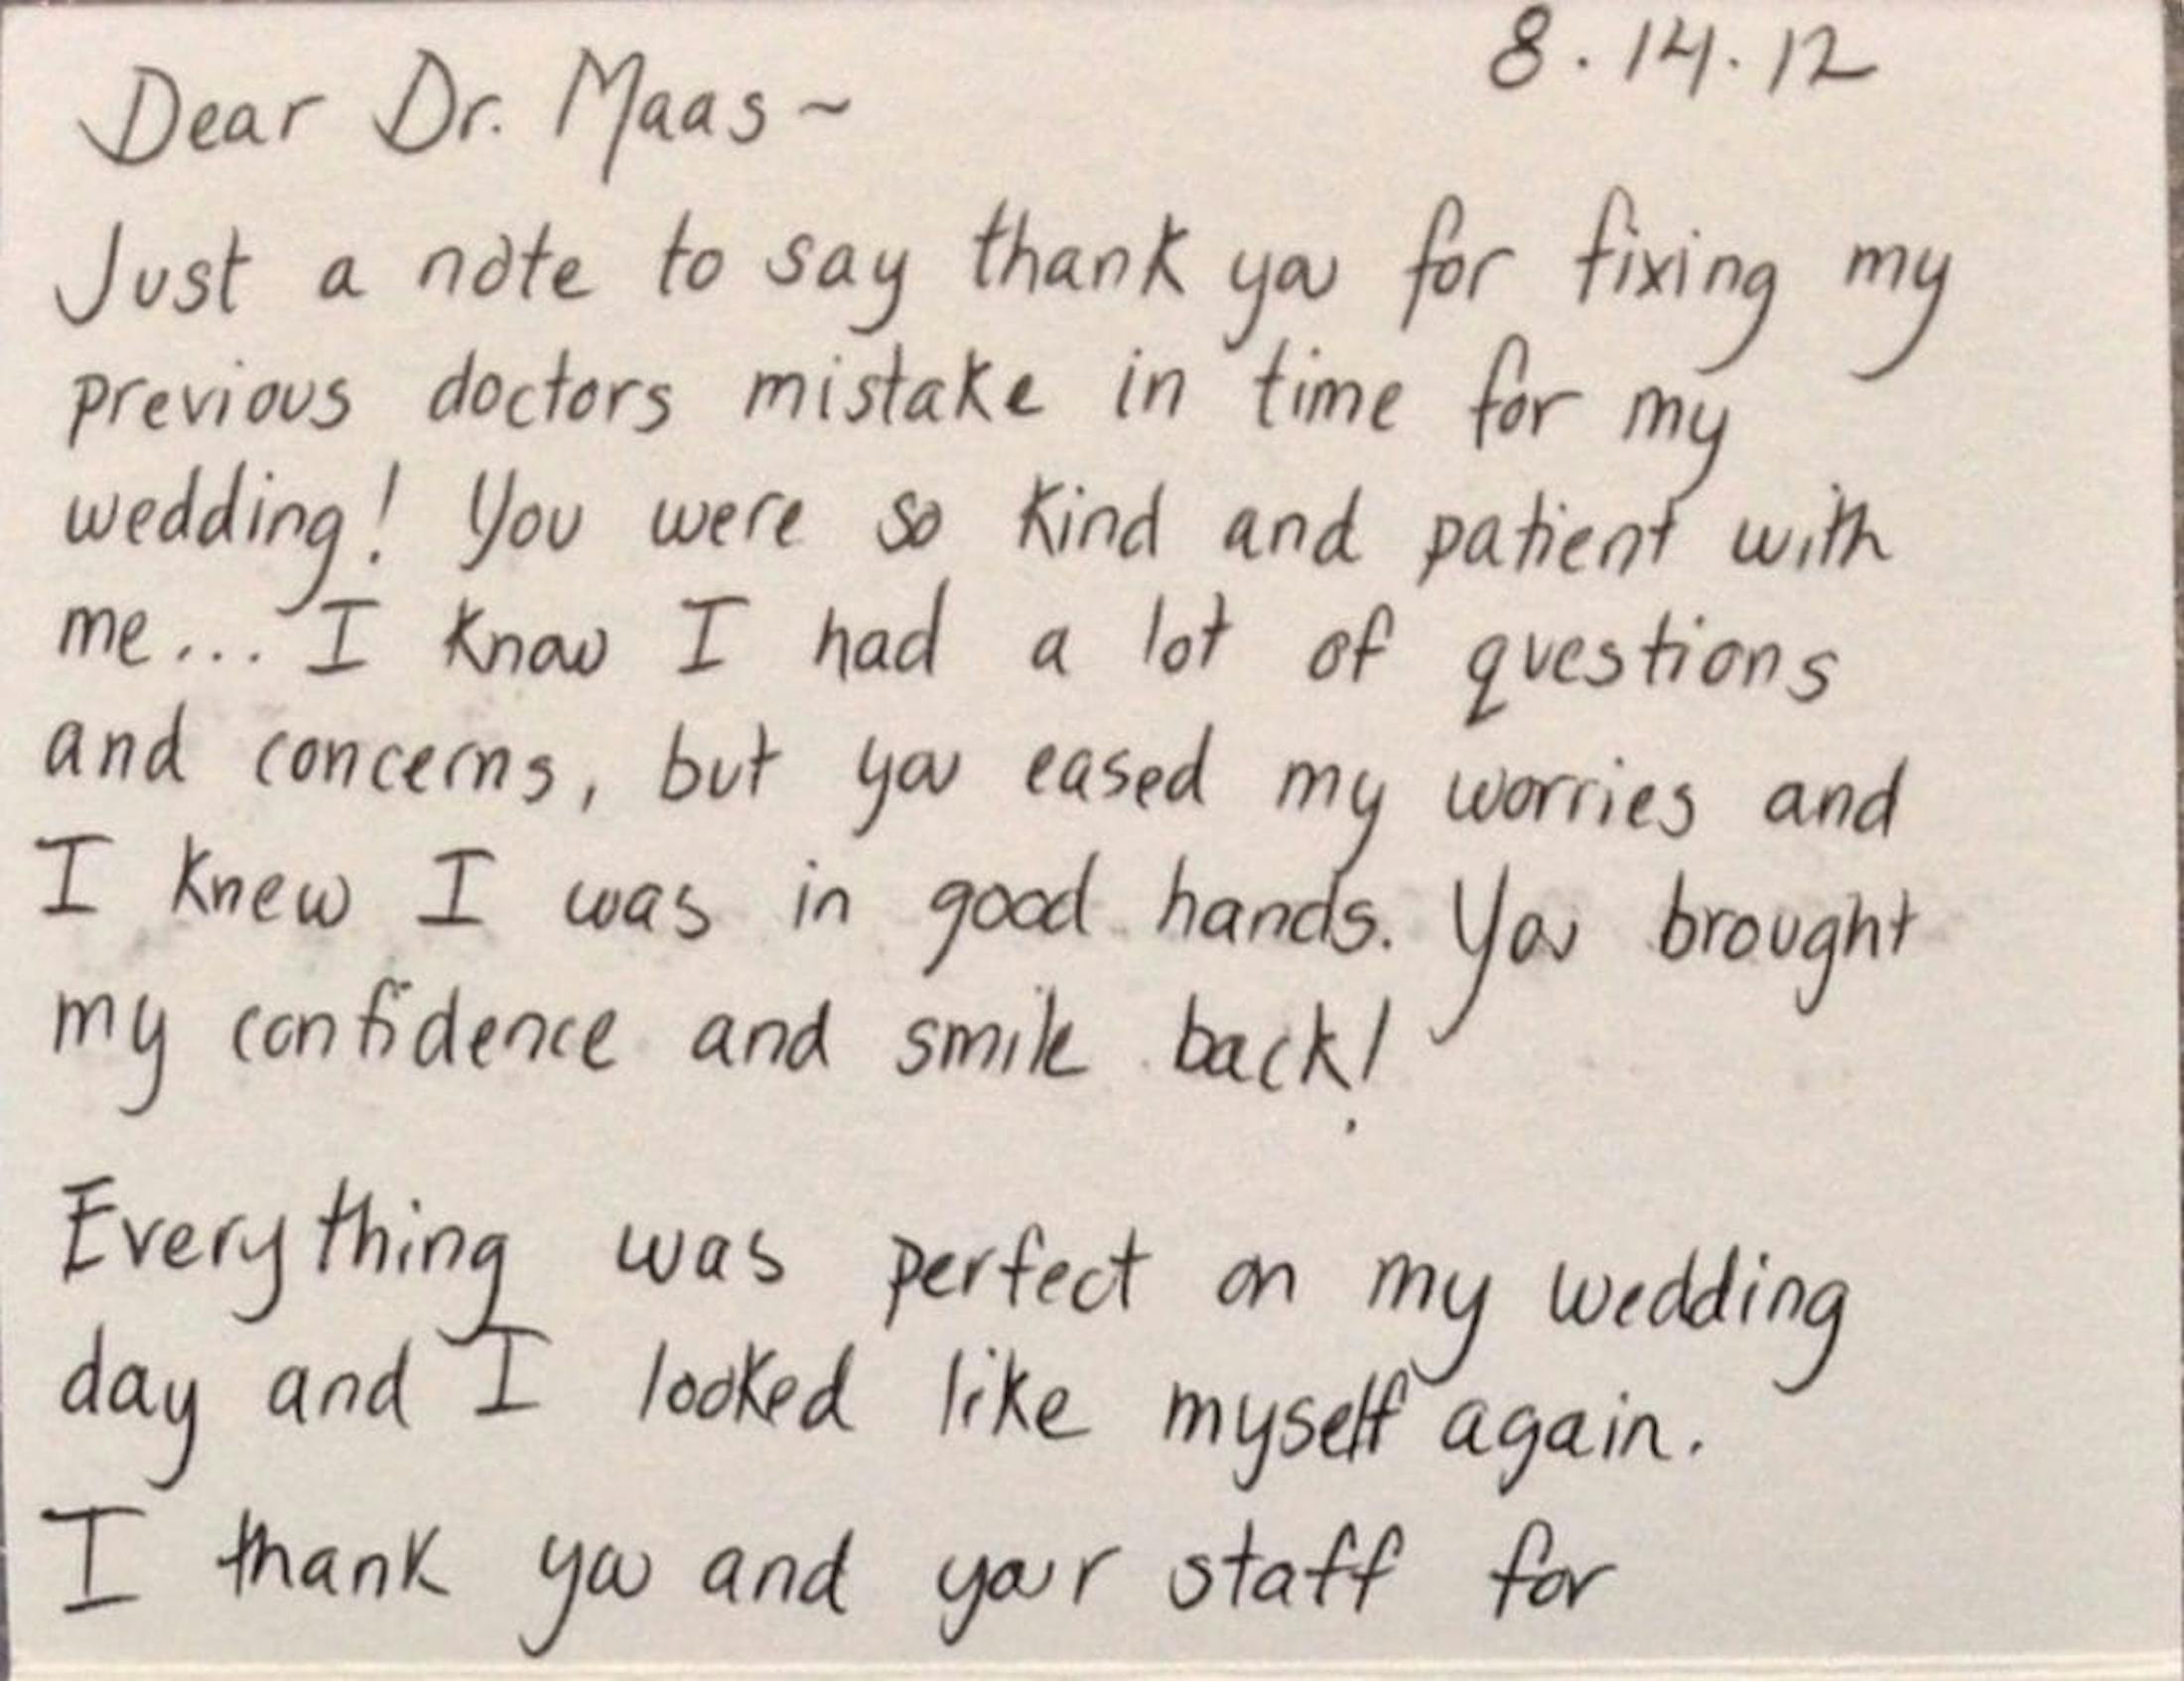 8.14.12
Dear Dr. Maas~
Just a note to say thank you for fixing my
previous doctors mistake in time for my
wedding! You were so kind and patient with
me... I know I had a lot of questions
and concerns, but you eased my worries and
I knew I was in good hands. You brought
my confidence and smile back!
Everything was perfect on my wedding
day and I looked like myself again.
I thank you and your staff for